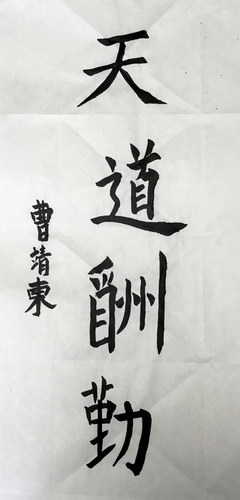 天道酬勤
曹靖東